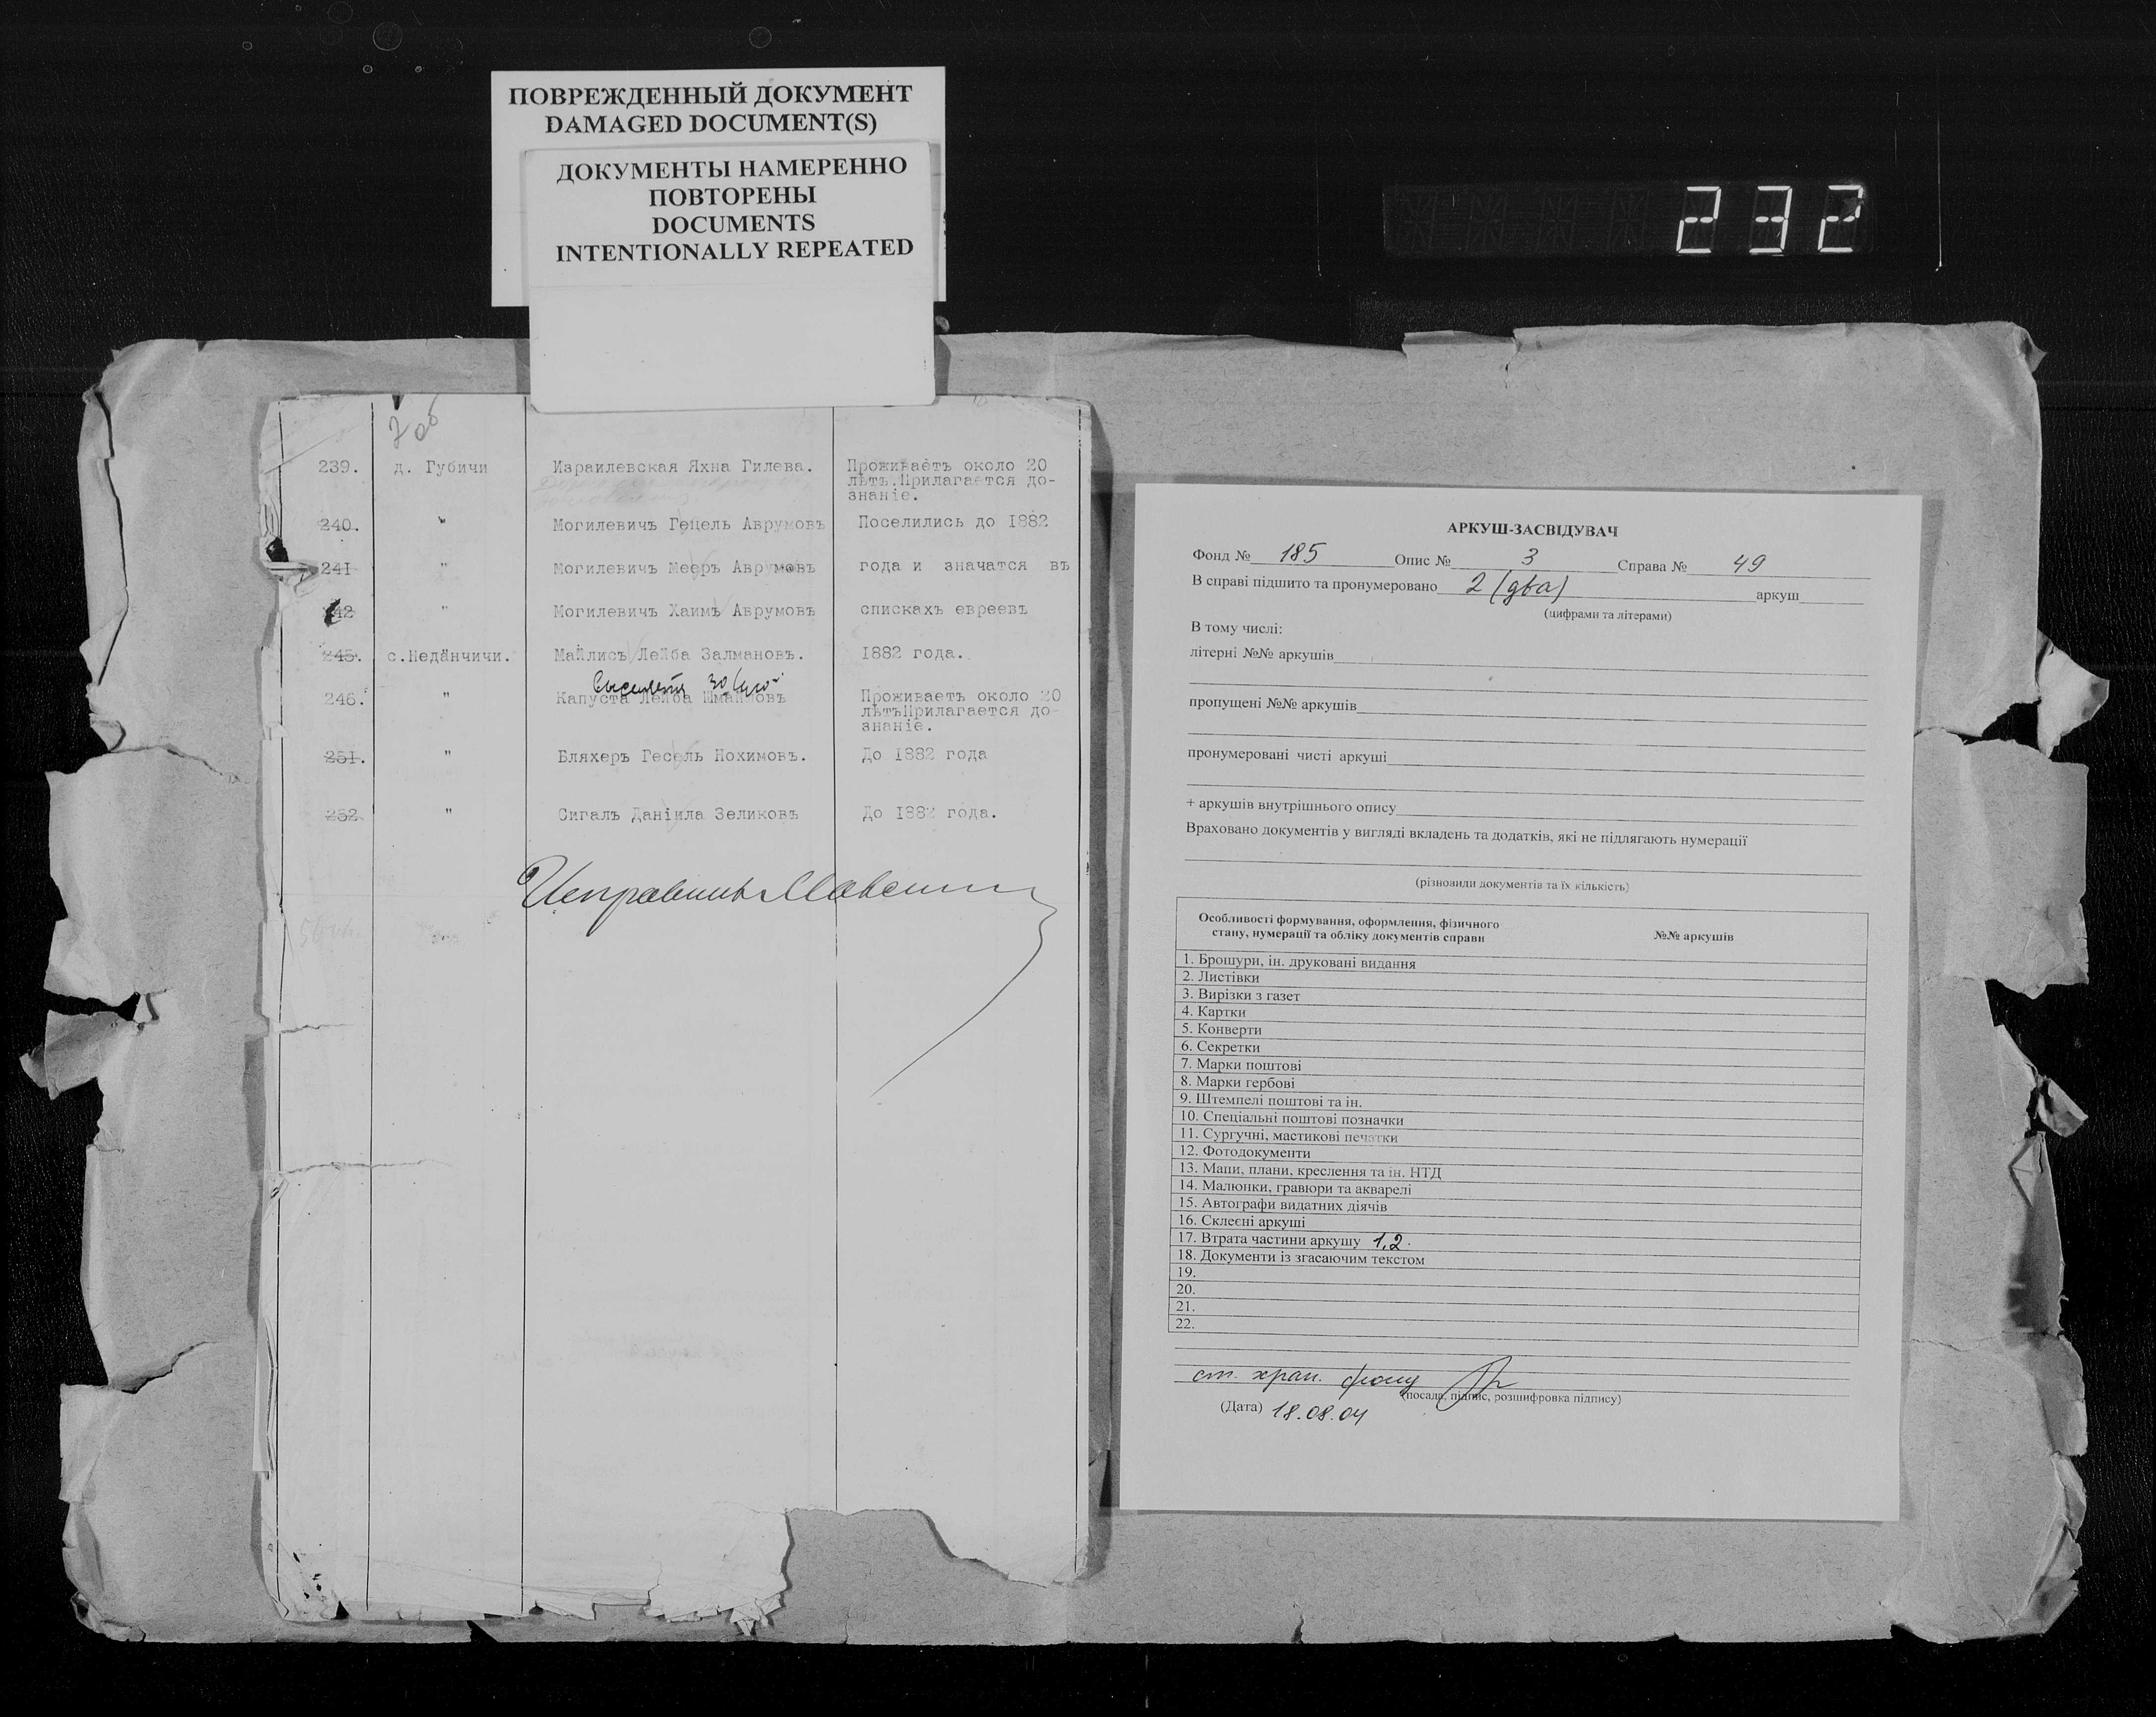 ПОВРЕЖДЕННЫЙ ДОКУМЕНТ
DAMAGED DOCUMENT(S)
ДОКУМЕНТЫ НАМЕРЕННО
ПОВТОРЕНЫ
DOCUMENTS
INTENTIONALLY REPEATED
232
239. д. Губичи Израилевская Яхна Гилева. Проживаетъ около 20
лѣтъ.Прилагается до-
знаніе.
240. " Могилевичъ Гецель Аврумовъ Поселились до 1882
241 " Могилевичъ Мееръ Аврумовъ года и значатся въ
242 " Могилевичъ Хаимъ Аврумовъ спискахъ евреевъ
245. с.Неданчичи. Майлисъ Лейба Залмановъ. 1882 года.
246. " Капуста Лейба Шмаиловъ Проживаетъ около 20
лѣтъПрилагается до-
знаніе.
251. " Бляхеръ Гесель Нохимовъ. До 1882 года
252 " Сигалъ Даніила Зеликовъ До 1882 года.
Исправникъ
АРКУШ-ЗАСВІДУВАЧ
Фонд № 185 Опис № 3 Справа № 49
В справі підшито та пронумеровано 2 (два) аркуш
(цифрами та літерами)
В тому числі:
літерні №№ аркушів
пропущені №№ аркушів
пронумеровані чисті аркуші
+ аркушів внутрішнього опису
Враховано документів у вигляді вкладень та додатків, які не підлягають нумерації
(різновиди документів та їх кількість)
Особливості формування, оформлення, фізичного
стану, нумерації та обліку документів справи №№ аркушів
1. Брошури, ін. друковані видання
2. Листівки
3. Вирізки з газет
4. Картки
5. Конверти
6. Секретки
7. Марки поштові
8. Марки гербові
9. Штемпелі поштові та ін.
10. Спеціальні поштові позначки
11. Сургучні, мастикові печатки
12. Фотодокументи
13. Мапи, плани, креслення та ін. НТД
14. Малюнки, гравюри та акварелі
15. Автографи видатних діячів
16. Склеєні аркуші
17. Втрата частини аркушу 1,2.
18. Документи із згасаючим текстом
19.
20.
21.
22.
ст. хран. фонду
(посада, підпис, розшифровка підпису)
(Дата) 18.08.04